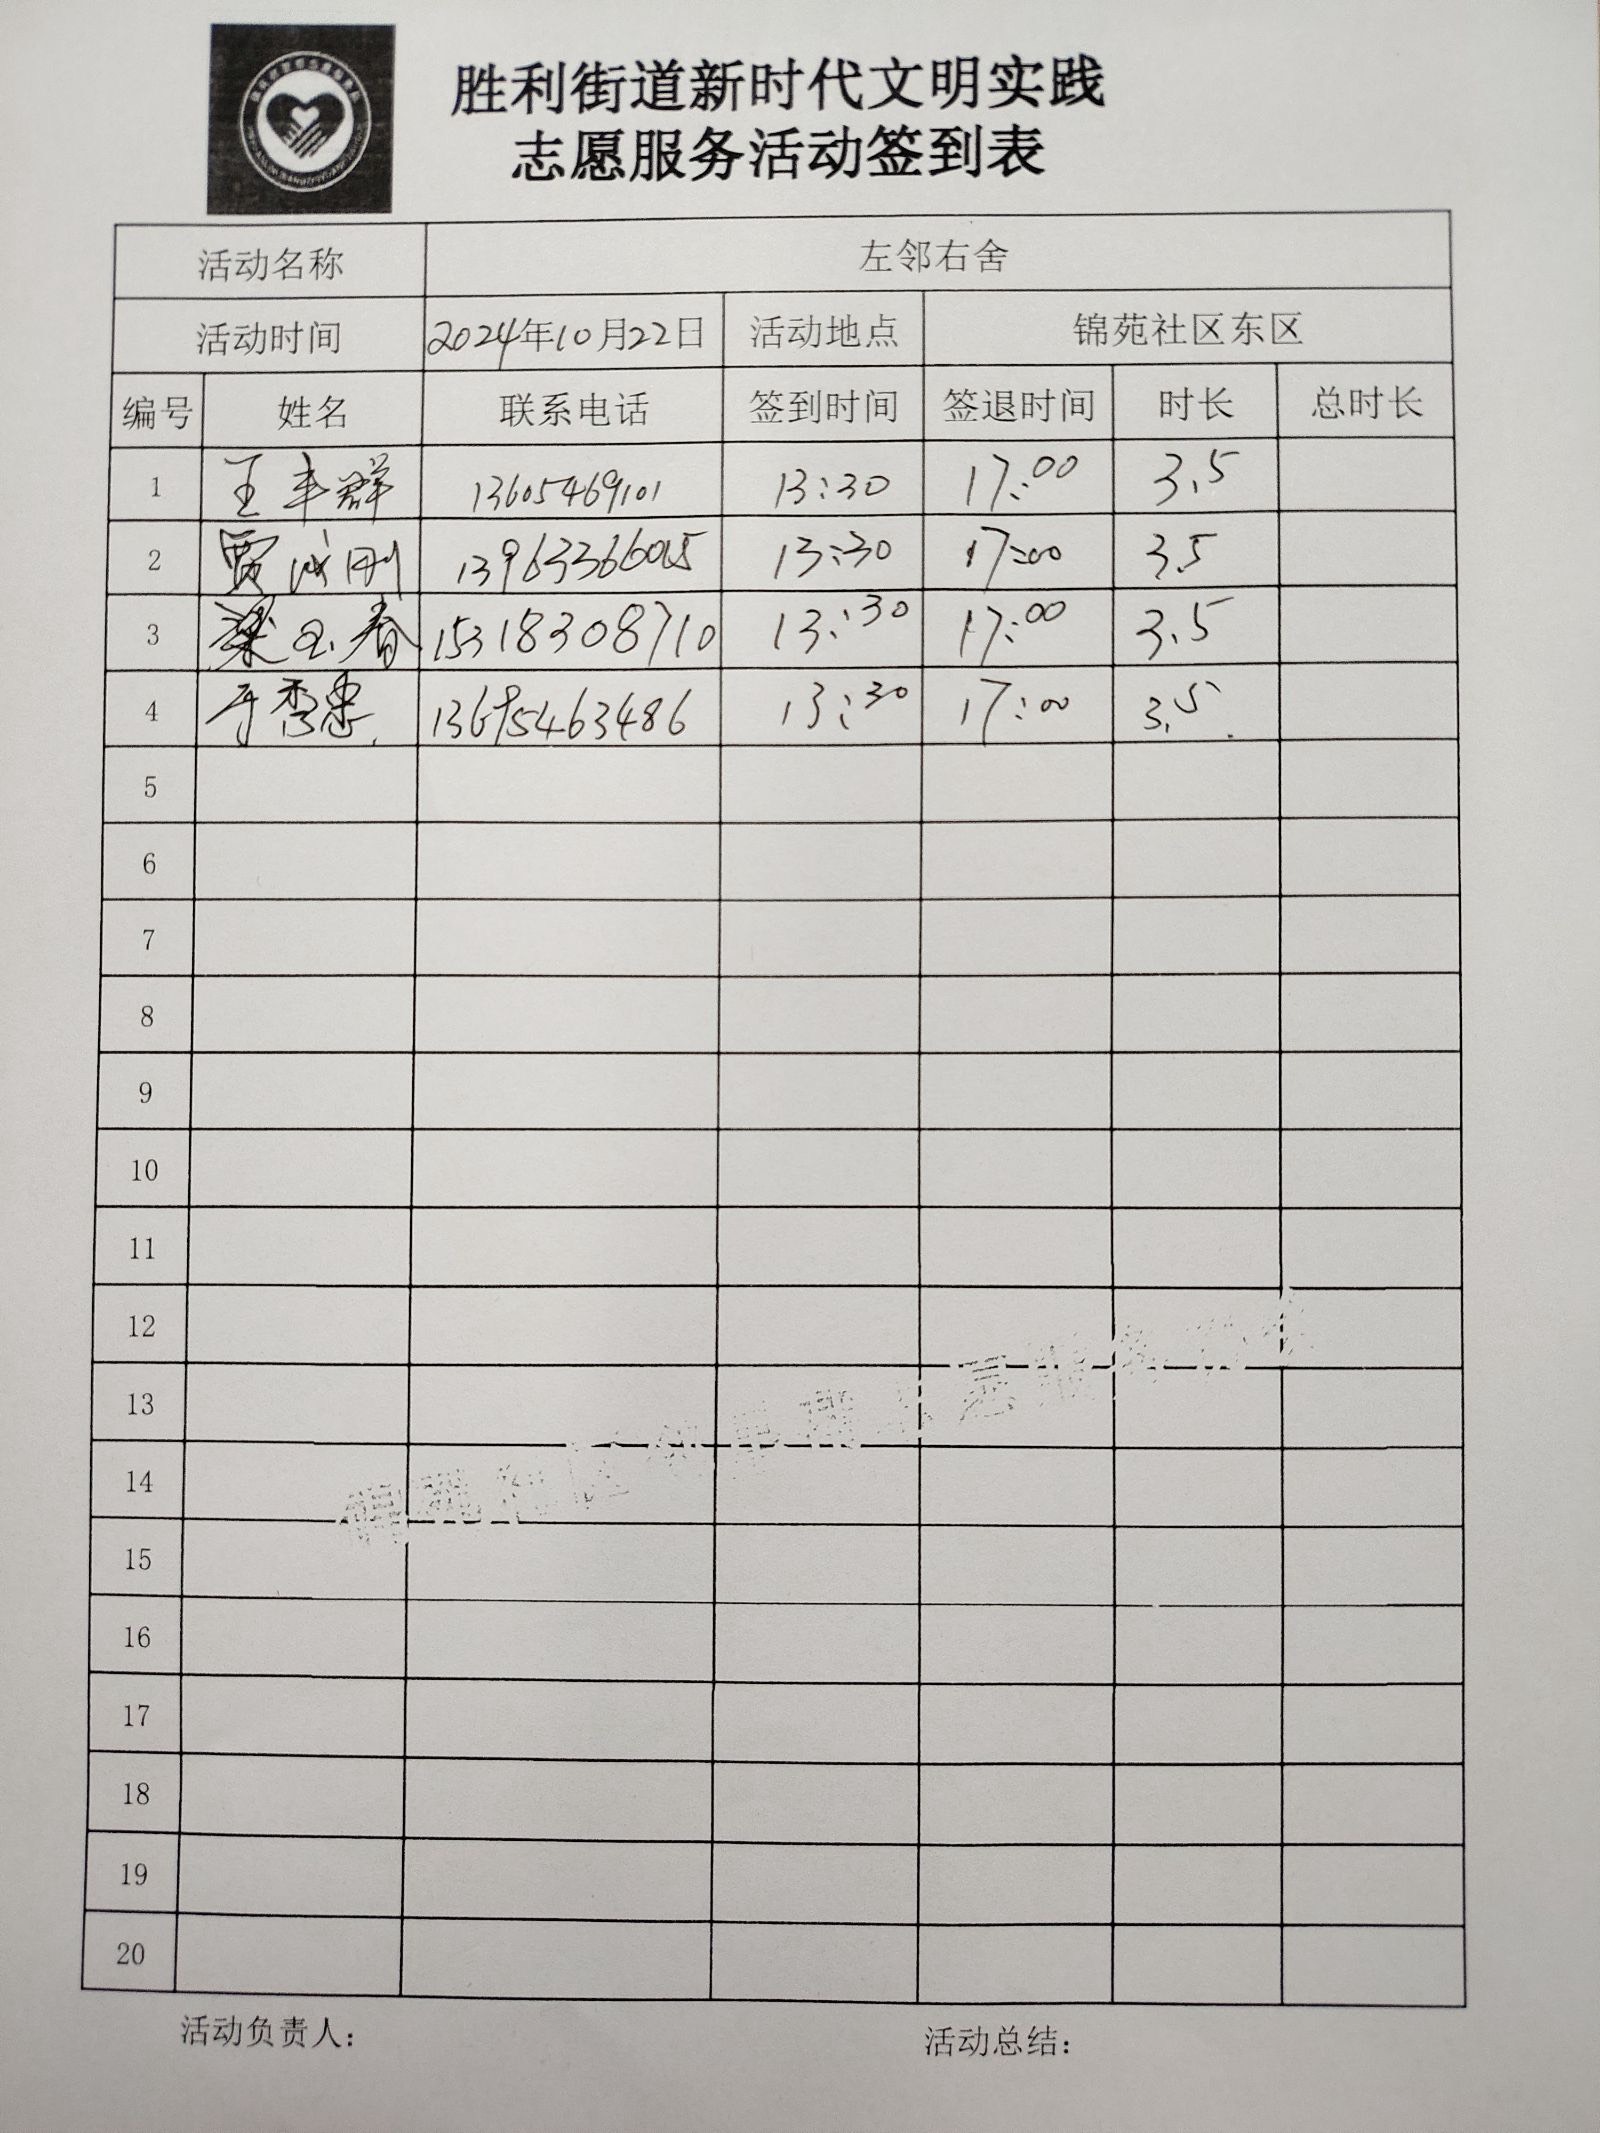 胜利街道新时代文明实践
志愿服务活动签到表
活动名称 左邻右舍
活动时间 2024年10月22日 活动地点 锦苑社区东区
编号 姓名 联系电话 签到时间 签退时间 时长 总时长
1 王丰群 13605469101 13:30 17:00 3.5
2 贾成刚 13963366015 13:30 17:00 3.5
3 梁玉春 15318308710 13:30 17:00 3.5
4 于秀忠 13695463486 13:30 17:00 3.5
5
6
7
8
9
10
11
12
13
14
15
16
17
18
19
20
活动负责人： 活动总结：